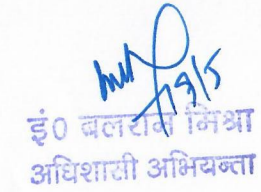 19/5
इं० बलराम मिश्रा
अधिशासी अभियन्ता